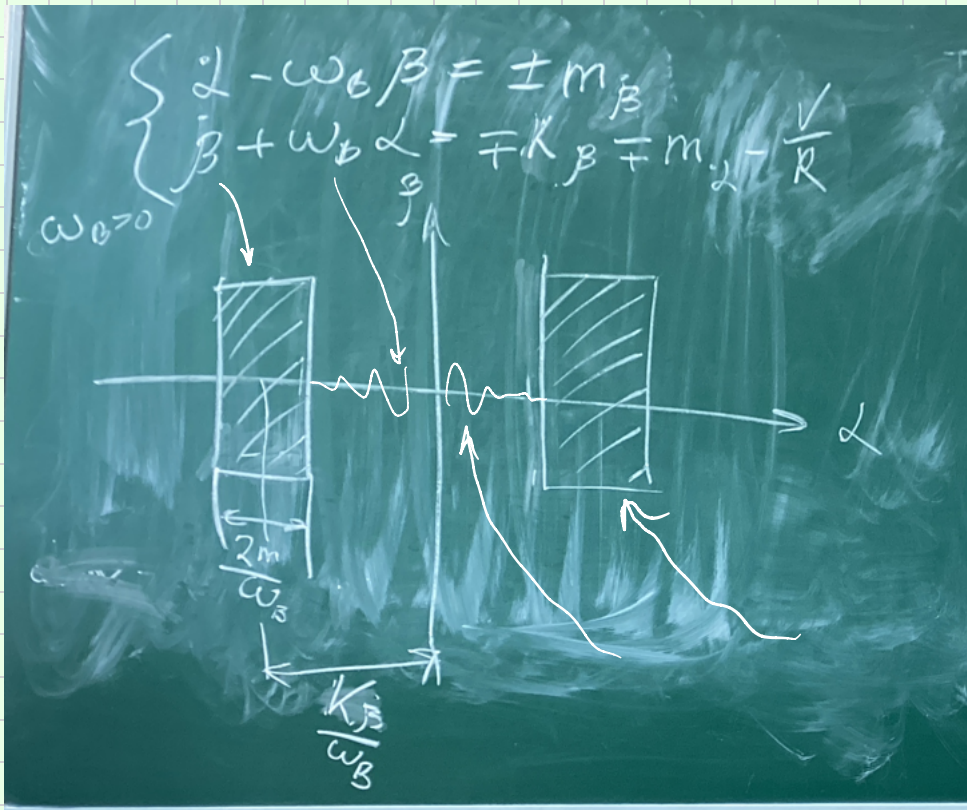 α̇ - ω_B β = ± m_β
β̇ + ω_B α = ∓ K_β ∓ m_α - V/R
ω_B>0
β
α
2m/ω_B
K_β/ω_B